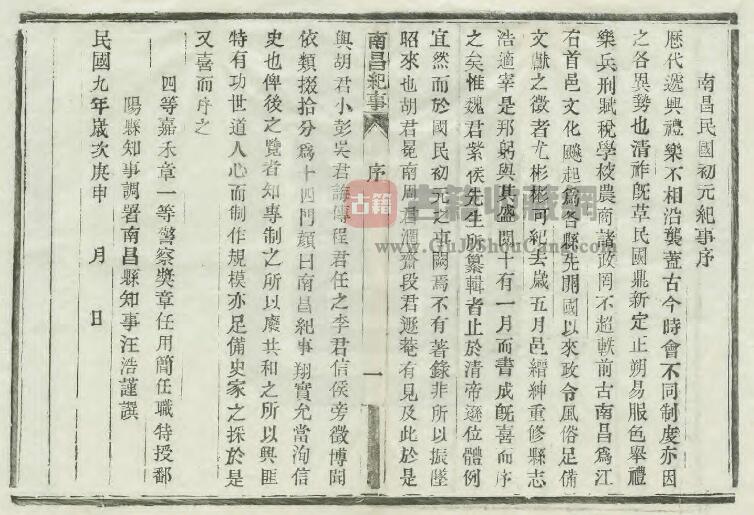 南昌民國初元紀事序
歷代遞興禮樂不相沿襲蓋古今時會不同制度亦因
之各異勢也清祚既革民國鼎新定正朔易服色舉禮
樂兵刑賦稅學校農商諸政罔不超軼前古南昌爲江
右首邑文化飈起爲各縣先開國以來政令風俗足備
文獻之徵者尤彬彬可紀去歲五月邑縉紳重修縣志
浩適宰是邦躬與其盛閱十有一月而書成既喜而序
之矣惟魏君紫侯先生所纂輯者止於清帝遜位體例
宜然而於國民初元之事闕焉不有著錄非所以振墜
昭來也胡君冕南周君潤齋段君遜菴有見及此於是
南昌紀事
序
一
與胡君小彭吳君誨傳程君任之李君信侯旁徵博聞
依類掇拾分爲十四門顏曰南昌紀事翔實允當洵信
史也俾後之覽者知專制之所以廢共和之所以興匪
特有功世道人心而制作規模亦足備史家之採於是
又喜而序之
四等嘉禾章一等警察獎章任用簡任職特授鄱
陽縣知事調署南昌縣知事汪浩謹譔
民國九年歲次庚申 月 日
古籍收藏網
www.GuJiShouCang.com